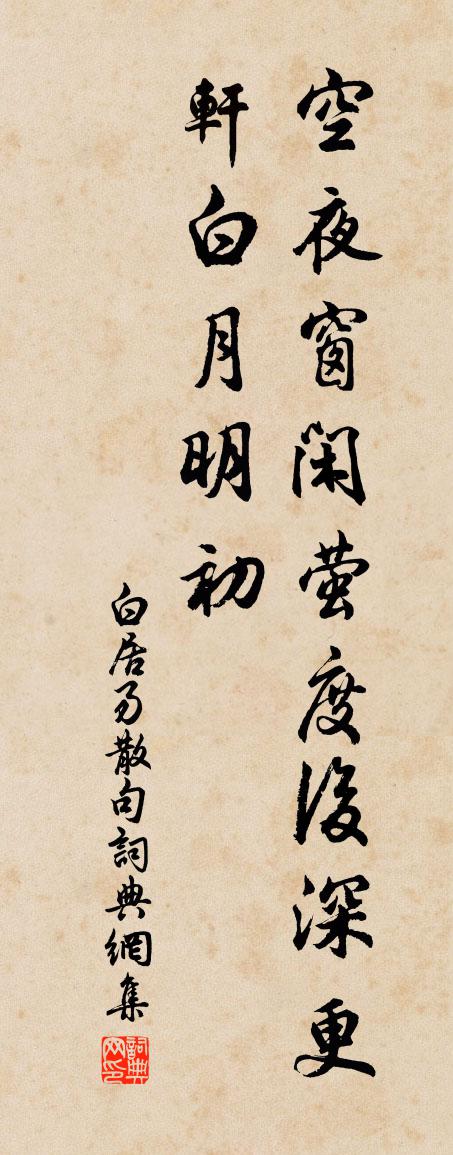 空夜窗閑螢度後深更
軒白月明初
白居易散句詞典網集
詞典网印